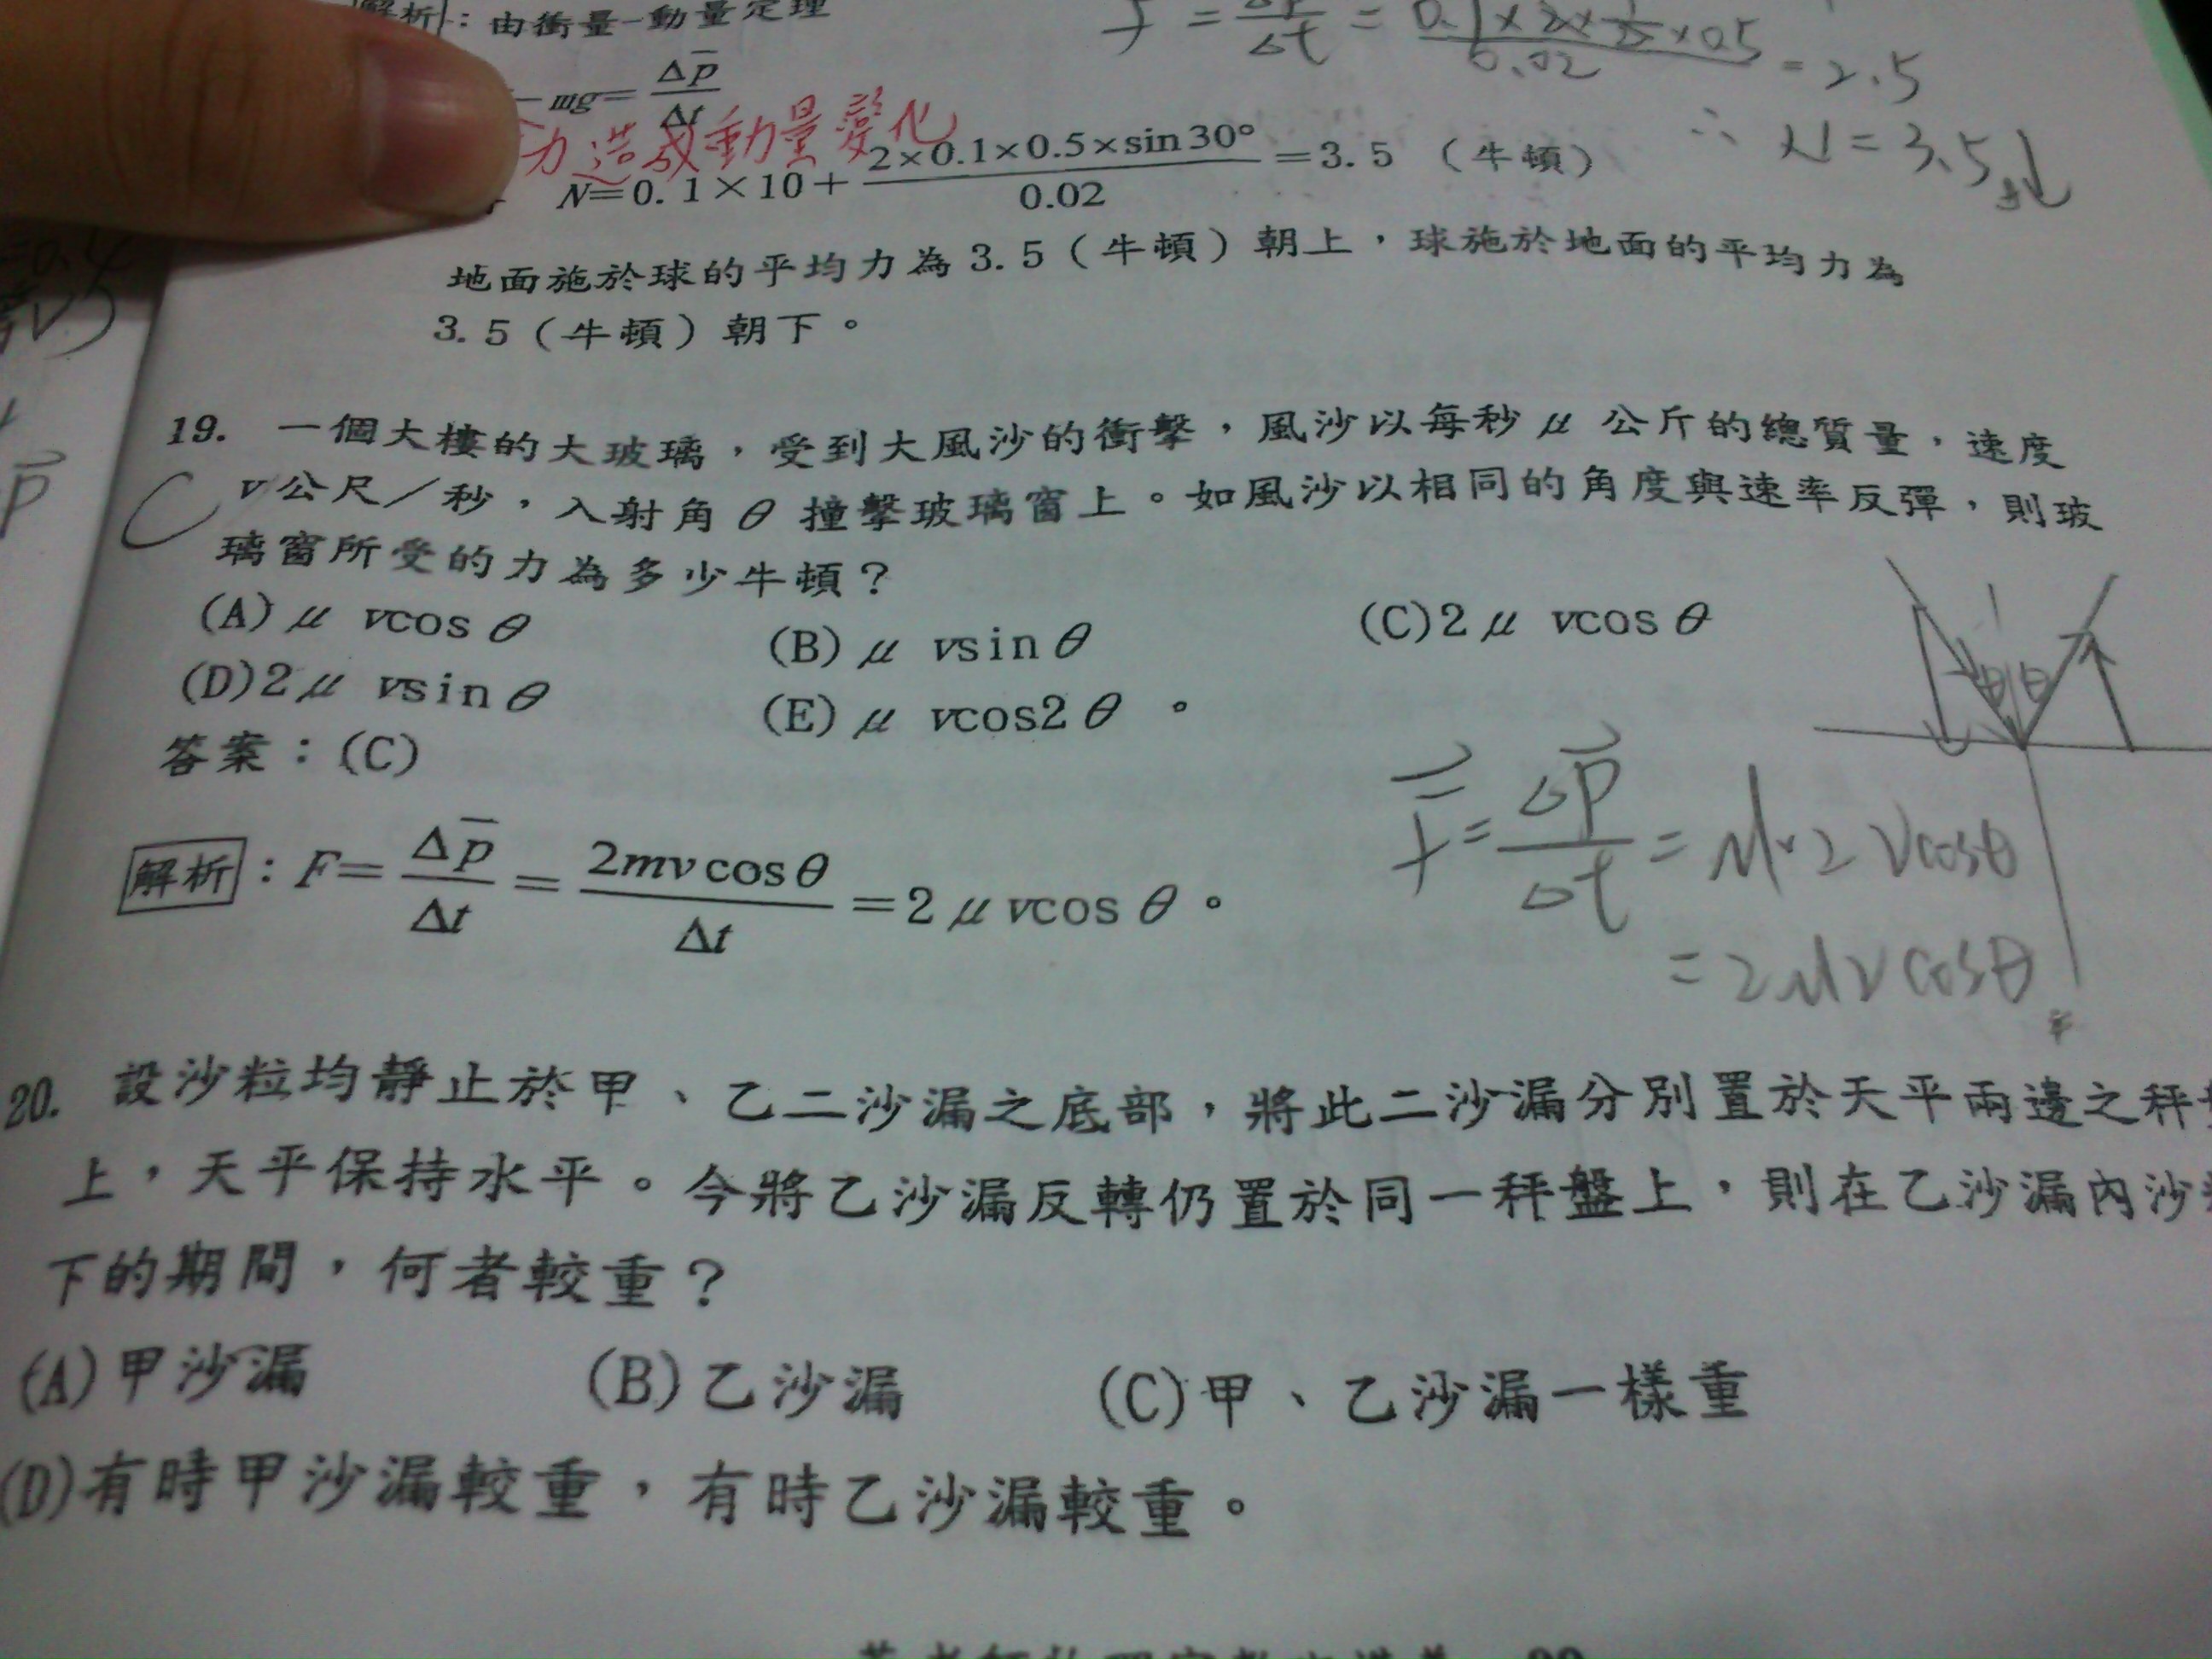 解析：由衝量-動量定理
F = Δp/Δt = 0.1×2×½×0.5/0.02 = 2.5
-mg=Δp̄/Δt
力造成動量變化
∴ N=3.5
N=0.1×10+2×0.1×0.5×sin30°/0.02=3.5（牛頓）
地面施於球的平均力為3.5（牛頓）朝上，球施於地面的平均力為
3.5（牛頓）朝下。
19. 一個大樓的大玻璃，受到大風沙的衝擊，風沙以每秒μ公斤的總質量，速度
C
v公尺／秒，入射角θ撞擊玻璃窗上。如風沙以相同的角度與速率反彈，則玻
璃窗所受的力為多少牛頓？
(A)μ vcosθ (B)μ vsinθ (C)2μ vcosθ
(D)2μ vsinθ (E)μ vcos2θ 。
θ θ
答案：(C)
解析：F=Δp̄/Δt=2mv cosθ/Δt=2μvcosθ。
F⃗=Δp⃗/Δt=μ·2Vcosθ
=2μvcosθ
20. 設沙粒均靜止於甲、乙二沙漏之底部，將此二沙漏分別置於天平兩邊之秤
上，天平保持水平。今將乙沙漏反轉仍置於同一秤盤上，則在乙沙漏內沙
下的期間，何者較重？
(A)甲沙漏 (B)乙沙漏 (C)甲、乙沙漏一樣重
(D)有時甲沙漏較重，有時乙沙漏較重。